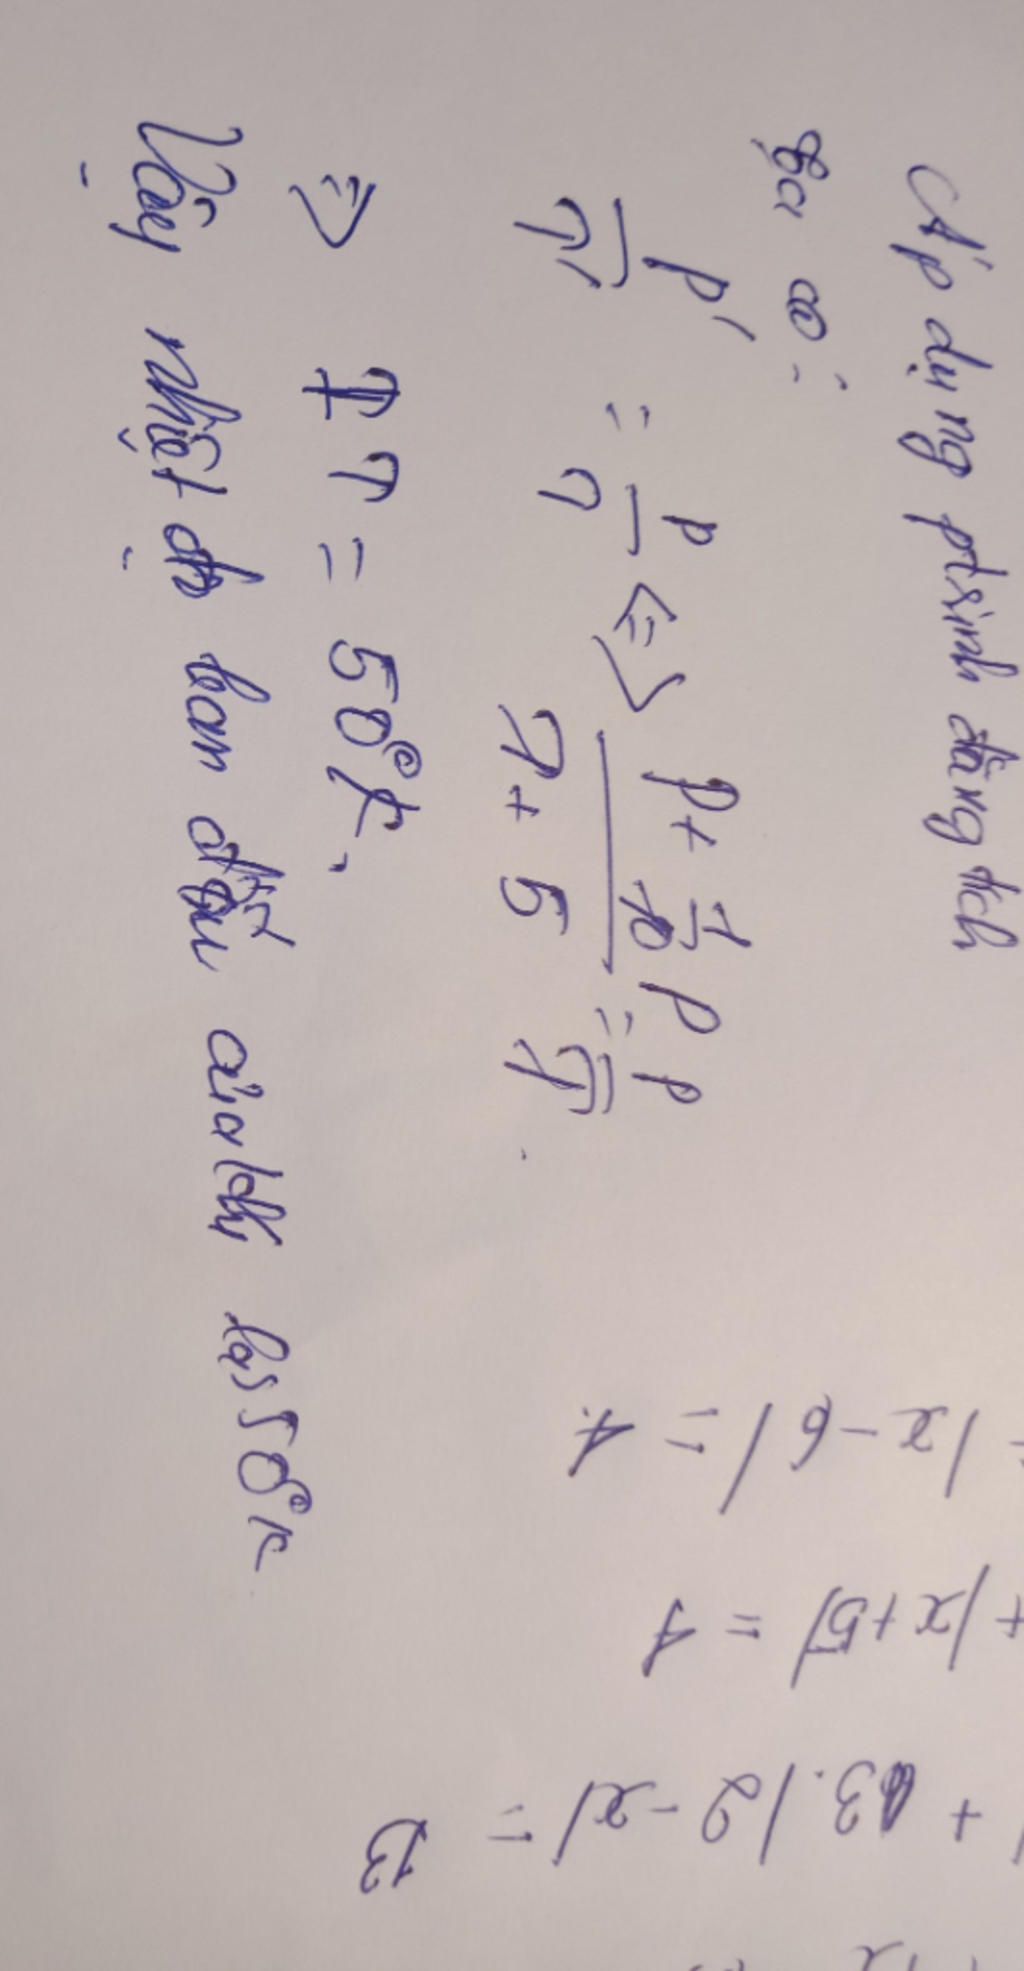 Áp dụng ptrình đẳng tích
ta có:
p'/T' = p/T <=> (p + 1/10 p)/(T + 5) = p/T
=> T = 50°K.
Vậy nhiệt độ ban đầu của khí là 50°K
|x-6| = 1
+ |x+5| = 1
+ 13.|2-x| = 13